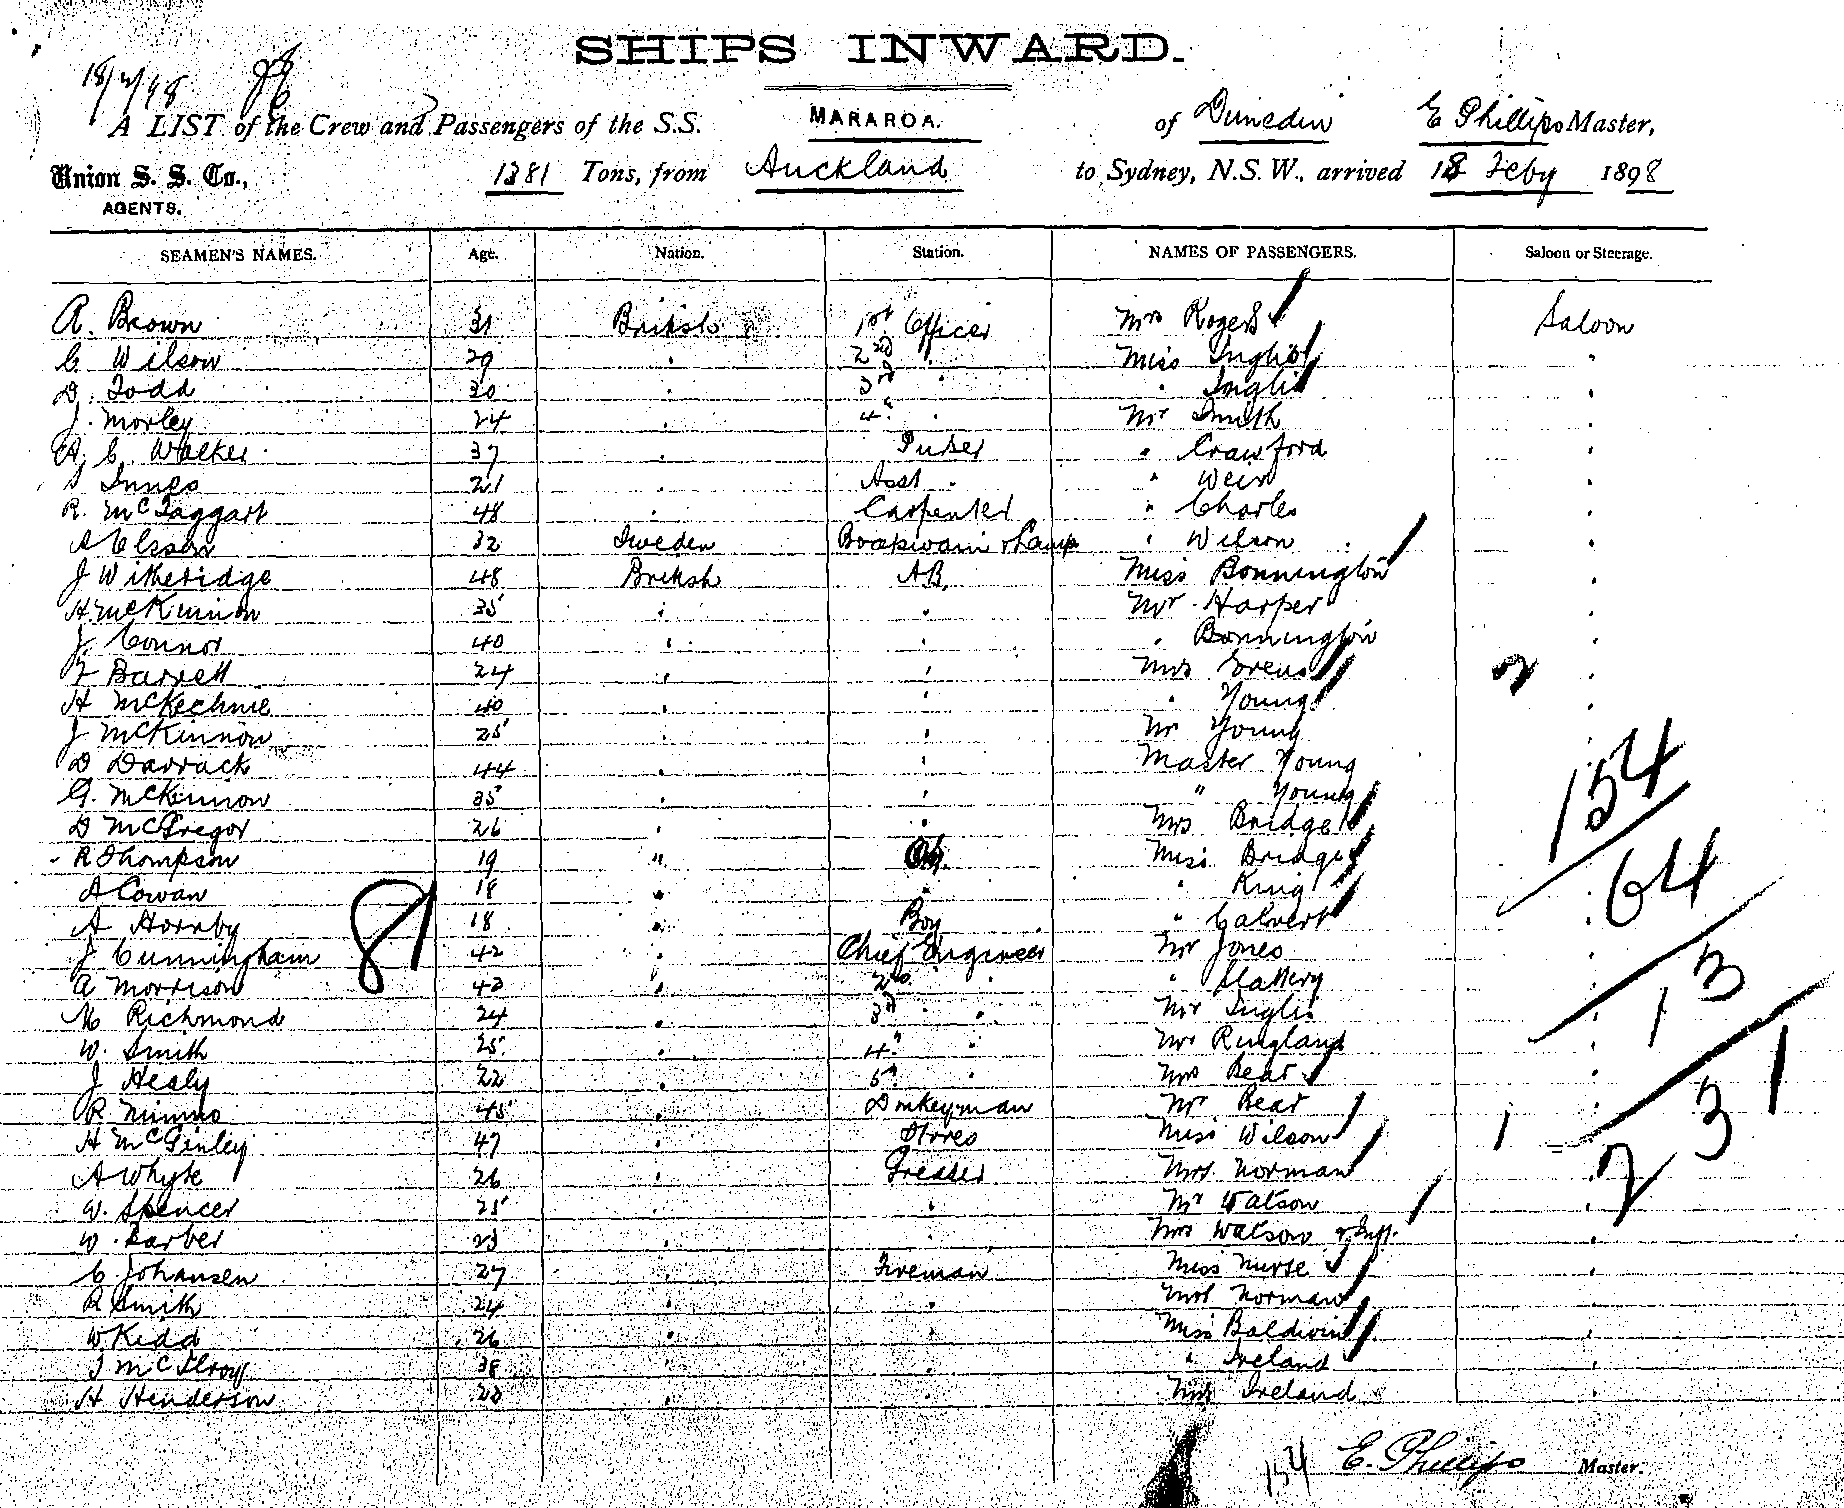 SHIPS INWARD.
18/2/98
A LIST of the Crew and Passengers of the S.S. MARAROA. of Dunedin E Phillips Master,
Union S. S. Co., 1381 Tons, from Auckland to Sydney, N.S.W., arrived 18 Feby 1898
AGENTS.
SEAMEN'S NAMES. Age. Nation. Station. NAMES OF PASSENGERS. Saloon or Steerage.
R. Brown 31 British 1st Officer Mrs Rogers Saloon
C Wilson 29 " 2nd " Miss Inglis "
D. Todd 30 " 3rd " " Inglis "
J. Morley 24 " 4th " Mr Smith "
A. C. Walker 37 " Purser " Crawford "
Innes 21 " Asst " " Weir "
R. McTaggart 48 " Carpenter " Charles "
A Olsson 32 Sweden Boatswain & Lamps " Wilson "
J Witheridge 48 British AB. Miss Bonnington "
H. McKinnon 35 " " Mr Harper "
J. Connor 40 " " " Bonnington "
F Barrett 24 " " Mrs "
H McKechnie 40 " " " Young "
J McKinnon 25 " " Mr Young "
D Darrack 44 " " Master Young "
G. McKinnon 35 " " " Young "
D McGregor 26 " " Mrs Bridge "
R Thompson 19 " Miss Bridge "
A Cowan 18 " " " King "
A Hornby 18 " Boy " Calvert "
J Cunningham 42 " Chief Engineer Mr Jones "
A Morrison 42 " 2nd " " Slattery "
M Richmond 24 " 3rd " Mr Inglis "
W. Smith 25 " 4th " Mr Ringland "
J Healy 22 " 5th " Mrs Bear "
R Nimmo 45 " Donkeyman Mr Bear "
H McGinley 47 " Stores Miss Wilson "
A Whyte 26 " Greaser Mrs Norman "
W. Spencer 25 " " Mr Watson "
W. Barber 23 " " Mrs Watson & Inft. "
C Johansen 27 " Fireman Miss Nurse "
R Smith 24 " " Norman "
W Kidd 26 " " Miss Baldwin "
J McIlroy 38 " " " Ireland "
H Henderson " " Ireland "
81
2
154
64
13
1
231
154 E. Phillips Master.